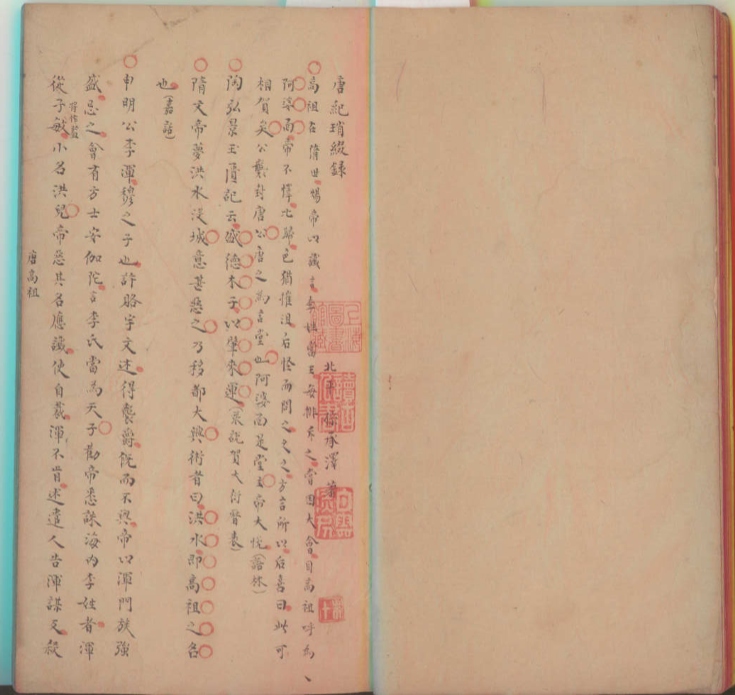 唐紀瑣綴錄
北平 孫承澤 著
高祖在隋世煬帝以讖言李姓當王每排斥之嘗因大會目高祖呼為
阿婆面帝不懌比歸色猶摧沮后怪而問之久之方言所以后喜曰此可
相賀矣公襲封唐公唐之為言堂也阿婆面是堂主帝大悅(語林)
陶弘景玉匱記云盛德木子以肇來運(裴說賀大行晉表)
隋文帝夢洪水沒城意甚惡之乃移都大興術者曰洪水即高祖之名
也(嘉話)
申明公李渾穆之子也許賂宇文述得襲爵既而不與帝以渾門族強
盛忌之會有方士安伽陀言李氏當為天子勸帝悉誅海內李姓者渾
從子敏小名洪兒帝惡其名應讖使自裁渾不肯述遣人告渾謀反殺
將作監
唐高祖